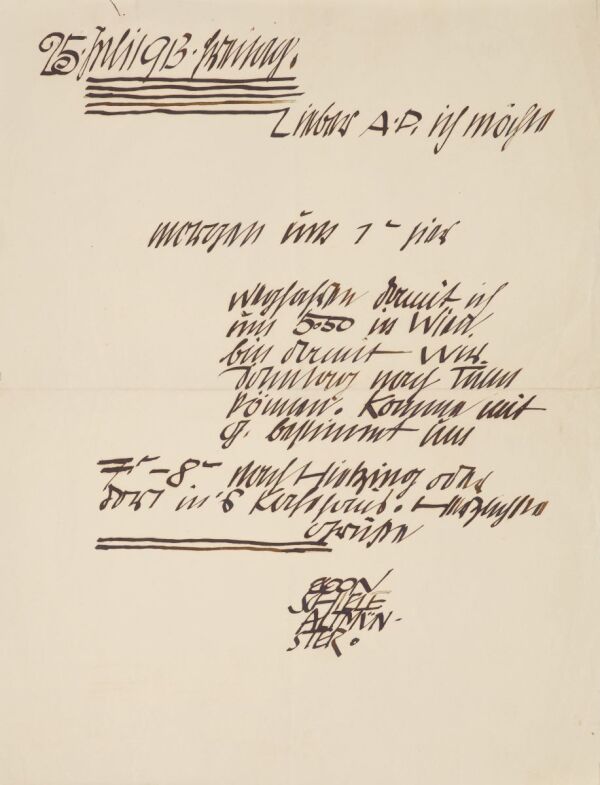 25. Juli 1913. Freitag.
Lieber A.P. ich möchte
morgen um 1h hier
wegfahren damit ich
um 5:50 in Wien
bin damit wir
Sonntag nach Tulln
können. Komme mit
G. bestimmt um
7h – 8h nach Hietzing oder
dort in's Kaffehaus. Herzlichste
Grüße
EGON
SCHIELE
ALTMÜN-
STER.